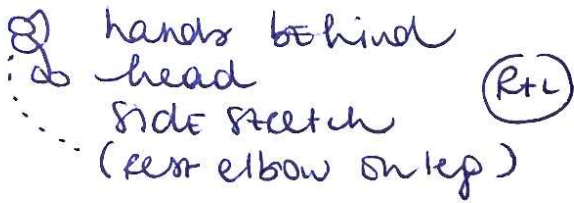 hands bEhind
head
SIdE Stretch
R+L
(rest elbow on leg)